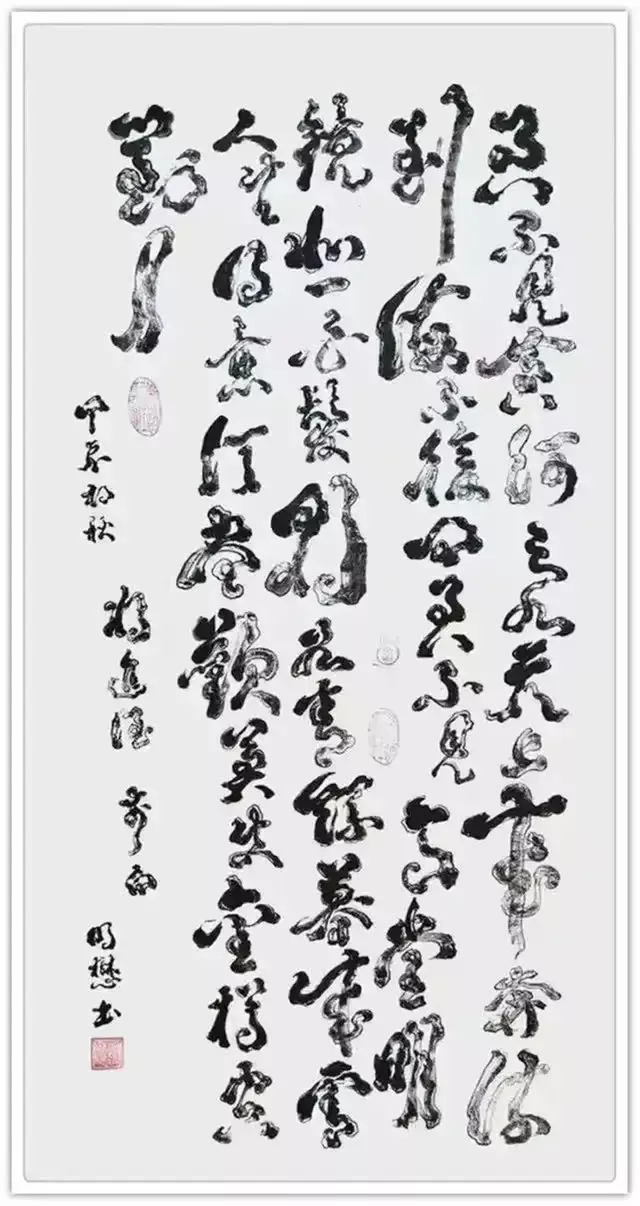 君不見黃河之水天上來奔流
到海不復回君不見高堂明
鏡悲白髮朝如青絲暮成雪
人生得意須盡歡莫使金樽空
對月
甲辰初秋 将進酒 明懋书